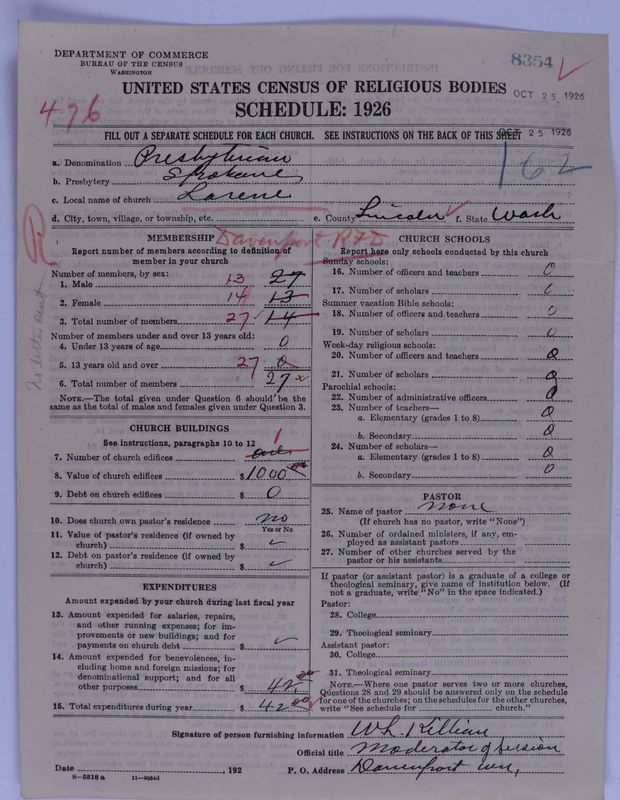 DEPARTMENT OF COMMERCE
BUREAU OF THE CENSUS
WASHINGTON
8354
UNITED STATES CENSUS OF RELIGIOUS BODIES
OCT 25, 1926
476
SCHEDULE: 1926
FILL OUT A SEPARATE SCHEDULE FOR EACH CHURCH. SEE INSTRUCTIONS ON THE BACK OF THIS SHEET
OCT 25 1926
162
a. Denomination Presbyterian
b. Presbytery Spokane
c. Local name of church Larene
d. City, town, village, or township, etc. e. County Lincoln f. State Wash
Davenport RFD
MEMBERSHIP
Report number of members according to definition of
member in your church
Number of members, by sex:
1. Male 13 27
2. Female 14 13
3. Total number of members 27 14
Number of members under and over 13 years old:
4. Under 13 years of age 0
5. 13 years old and over 27 0
6. Total number of members 27
NOTE.—The total given under Question 6 should be the
same as the total of males and females given under Question 3.
CHURCH BUILDINGS
See instructions, paragraphs 10 to 12
1
7. Number of church edifices one
8. Value of church edifices $1000 00
9. Debt on church edifices $ 0
10. Does church own pastor's residence no
Yes or No
11. Value of pastor's residence (if owned by
church) $ ✓
12. Debt on pastor's residence (if owned by
church) $ ✓
EXPENDITURES
Amount expended by your church during last fiscal year
13. Amount expended for salaries, repairs,
and other running expenses; for im-
provements or new buildings; and for
payments on church debt $ ✓
14. Amount expended for benevolences, in-
cluding home and foreign missions; for
denominational support; and for all
other purposes $ 42.00
15. Total expenditures during year $ 42.00
CHURCH SCHOOLS
Report here only schools conducted by this church
Sunday schools:
16. Number of officers and teachers 0
17. Number of scholars 0
Summer vacation Bible schools:
18. Number of officers and teachers 0
19. Number of scholars 0
Week-day religious schools:
20. Number of officers and teachers 0
21. Number of scholars 0
Parochial schools:
22. Number of administrative officers 0
23. Number of teachers—
a. Elementary (grades 1 to 8) 0
b. Secondary 0
24. Number of scholars—
a. Elementary (grades 1 to 8) 0
b. Secondary 0
PASTOR
25. Name of pastor none
(If church has no pastor, write "None")
26. Number of ordained ministers, if any, em-
ployed as assistant pastors
27. Number of other churches served by the
pastor or his assistants
If pastor (or assistant pastor) is a graduate of a college or
theological seminary, give name of institution below. (If
not a graduate, write "No" in the space indicated.)
Pastor:
28. College
29. Theological seminary
Assistant pastor:
30. College
31. Theological seminary
NOTE.—Where one pastor serves two or more churches,
Questions 28 and 29 should be answered only on the schedule
for one of the churches; on the schedules for the other churches,
write "See schedule for church."
Signature of person furnishing information W L Killian
Official title Moderator of Session
Date , 192 P. O. Address Davenport Wn,
8—5518 a